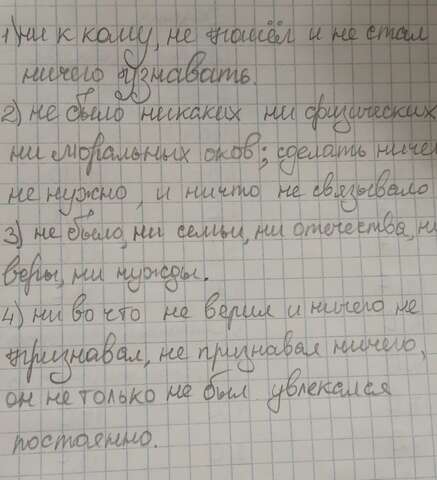 1) ни к кому, не пошёл и не стал
ничего узнавать.
2) не было никаких ни физических
ни моральных оков; сделать ничег
не нужно, и ничто не связывало
3) не было, ни семьи, ни отечества, ни
веры, ни нужды.
4) ни во что не верил и ничего не
признавал, не признавая ничего,
он не только не был увлекался
постоянно.